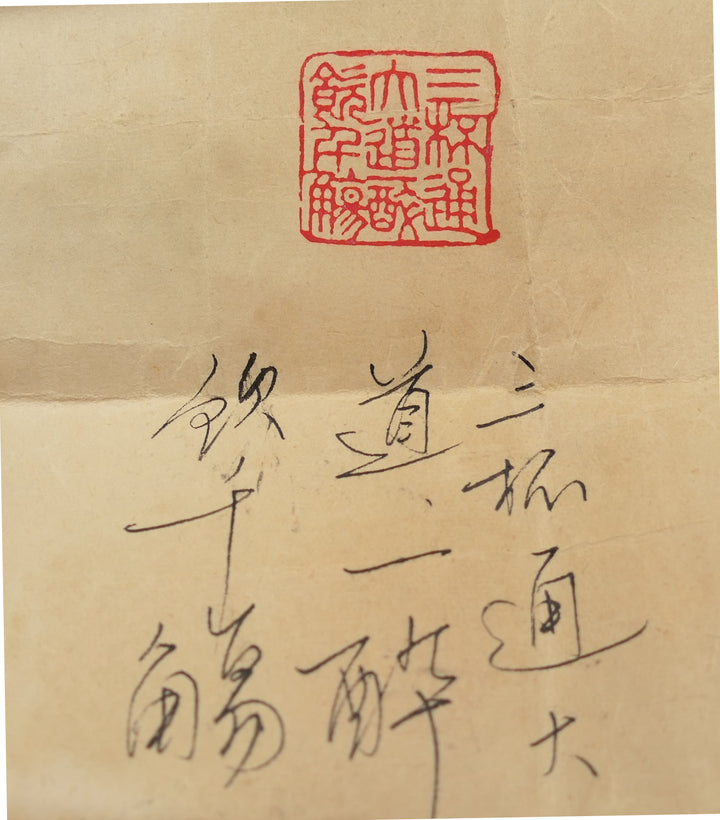 三杯通
大道一醉
飲千觴
三杯通大
道、一醉
飲千觴